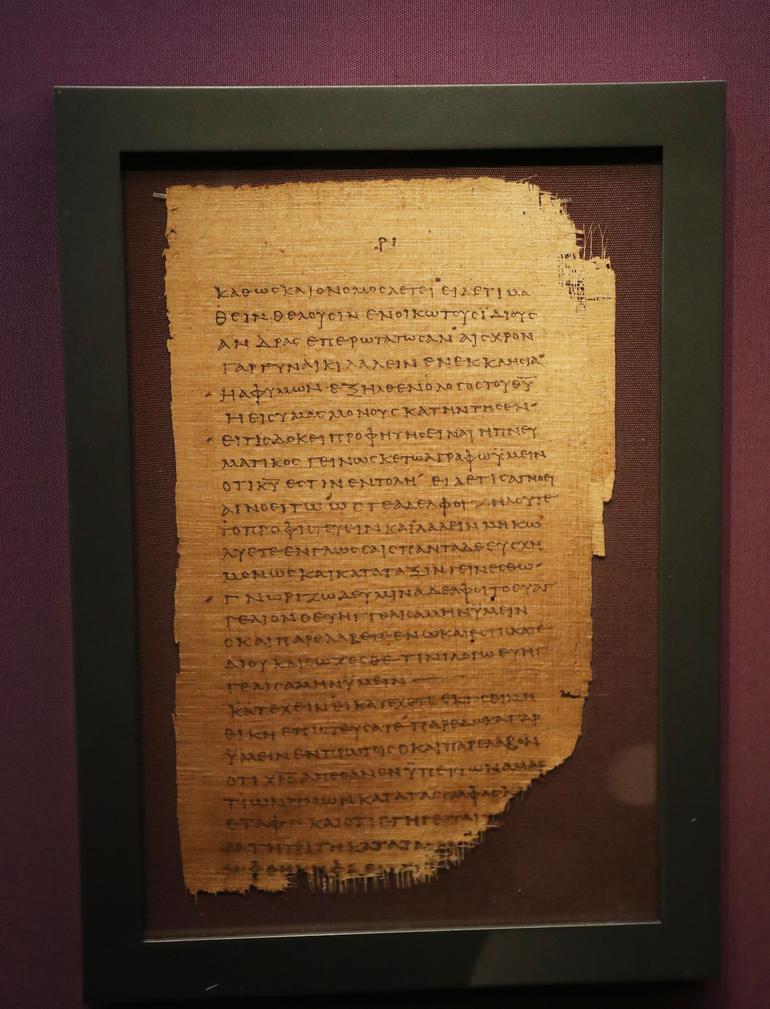 ΡΙ
ΚΑΘΩCΚΑΙΟΝΟΜΟCΛΕΓΕΙ ΕΙΔΕΤΙΜΑ
ΘΕΙΝΘΕΛΟΥCΙΝ ΕΝΟΙΚΩΤΟΥCΪΔΙΟΥC
ΑΝΔΡΑCΕΠΕΡΩΤΑΤΩCΑΝ ΑΙCΧΡΟΝ
ΓΑΡΓΥΝΑΙΚΙΛΑΛΕΙΝΕΝΕΚΚΛΗCΙΑ
ΗΑΦΥΜΩΝ ΕΞΗΛΘΕΝΟΛΟΓΟCΤΟΥΘ̅Υ̅
ΗΕΙCΥΜΑCΜΟΝΟΥCΚΑΤΗΝΤΗCΕΝ
ΕΙΤΙCΔΟΚΕΙΠΡΟΦΗΤΗCΕΙΝΑΙΗΠΝΕΥ
ΜΑΤΙΚΟCΓΕΙΝΩCΚΕΤΩΑΓΡΑΦΩΫΜΕΙΝ
ΟΤΙΚ̅Υ̅ΕCΤΙΝΕΝΤΟΛΗ ΕΙΔΕΤΙCΑΓΝΟΕΙ
ΑΓΝΟΕΙΤΩ ΩCΤΕΑΔΕΛΦΟΙΖΗΛΟΥΤΕ
ΤΟΠΡΟΦΗΤΕΥΕΙΝΚΑΙΛΑΛΕΙΝΜΗΚΩ
ΛΥΕΤΕΕΝΓΛΩCCΑΙCΠΑΝΤΑΔΕΕΥCΧΗ
ΜΟΝΩCΚΑΙΚΑΤΑΤΑΞΙΝΓΕΙΝΕCΘΩ
ΓΝΩΡΙΖΩΔΕΥΜΙΝΑΔΕΛΦΟΙΤΟΕΥΑΓ
ΓΕΛΙΟΝΟΕΥΗΓΓΕΛΙCΑΜΗΝΫΜΕΙΝ
ΟΚΑΙΠΑΡΕΛΑΒΕΤΕΕΝΩΚΑΙΕCΤΗΚΑΤΕ
ΔΙΟΥΚΑΙCΩΖΕCΘΕΤΙΝΙΛΟΓΩΕΥΗΓ
ΓΕΛΙCΑΜΗΝΫΜΕΙΝ
ΚΑΤΕΧΕΙΝΕΙΚΑΤΕΧΕΤΕΕΚΤΟCΕΙΜΗ
ΕΙΚΗΕΠΙCΤΕΥCΑΤΕ ΠΑΡΕΔΩΚΑΓΑΡ
ΫΜΕΙΝΕΝΠΡΩΤΟΙCΟΚΑΙΠΑΡΕΛΑΒΟΝ
ΟΤΙΧ̅Ρ̅C̅ΑΠΕΘΑΝΕΝΫΠΕΡΤΩΝΑΜΑΡ
ΤΙΩΝΗΜΩΝΚΑΤΑΤΑCΓΡΑΦΑC
ΕΤΑΦΗ ΚΑΙΟΤΙΕΓΗΓΕΡΤΑΙ